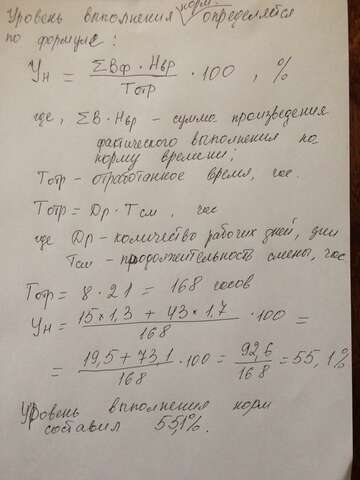 норм.
Уровень выполнения определяется
по формуле:
Ун = ΣВф · Нвр / Тотр · 100 , %
где, ΣВ · Нвр - сумма произведения
фактического выполнения на
норму времени;
Тотр - отработанное время, час.
Тотр = Др · Тсм , час
где Др - количество рабочих дней, дни
Тсм - продолжительность смены, час
Тотр = 8 · 21 = 168 часов
Ун = 15 × 1,3 + 43 × 1,7 / 168 · 100 =
= 19,5 + 73,1 / 168 · 100 = 92,6 / 168 = 55,1%
Уровень выполнения норм
составил 55,1%.